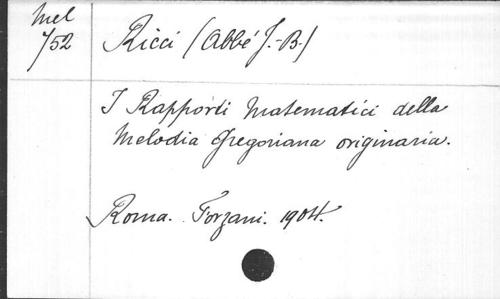 Mel
752
Ricci (Abbé J.-B.)
I Rapporti Matematici della
Melodia gregoriana originaria.
Roma. Forzani. 1904.